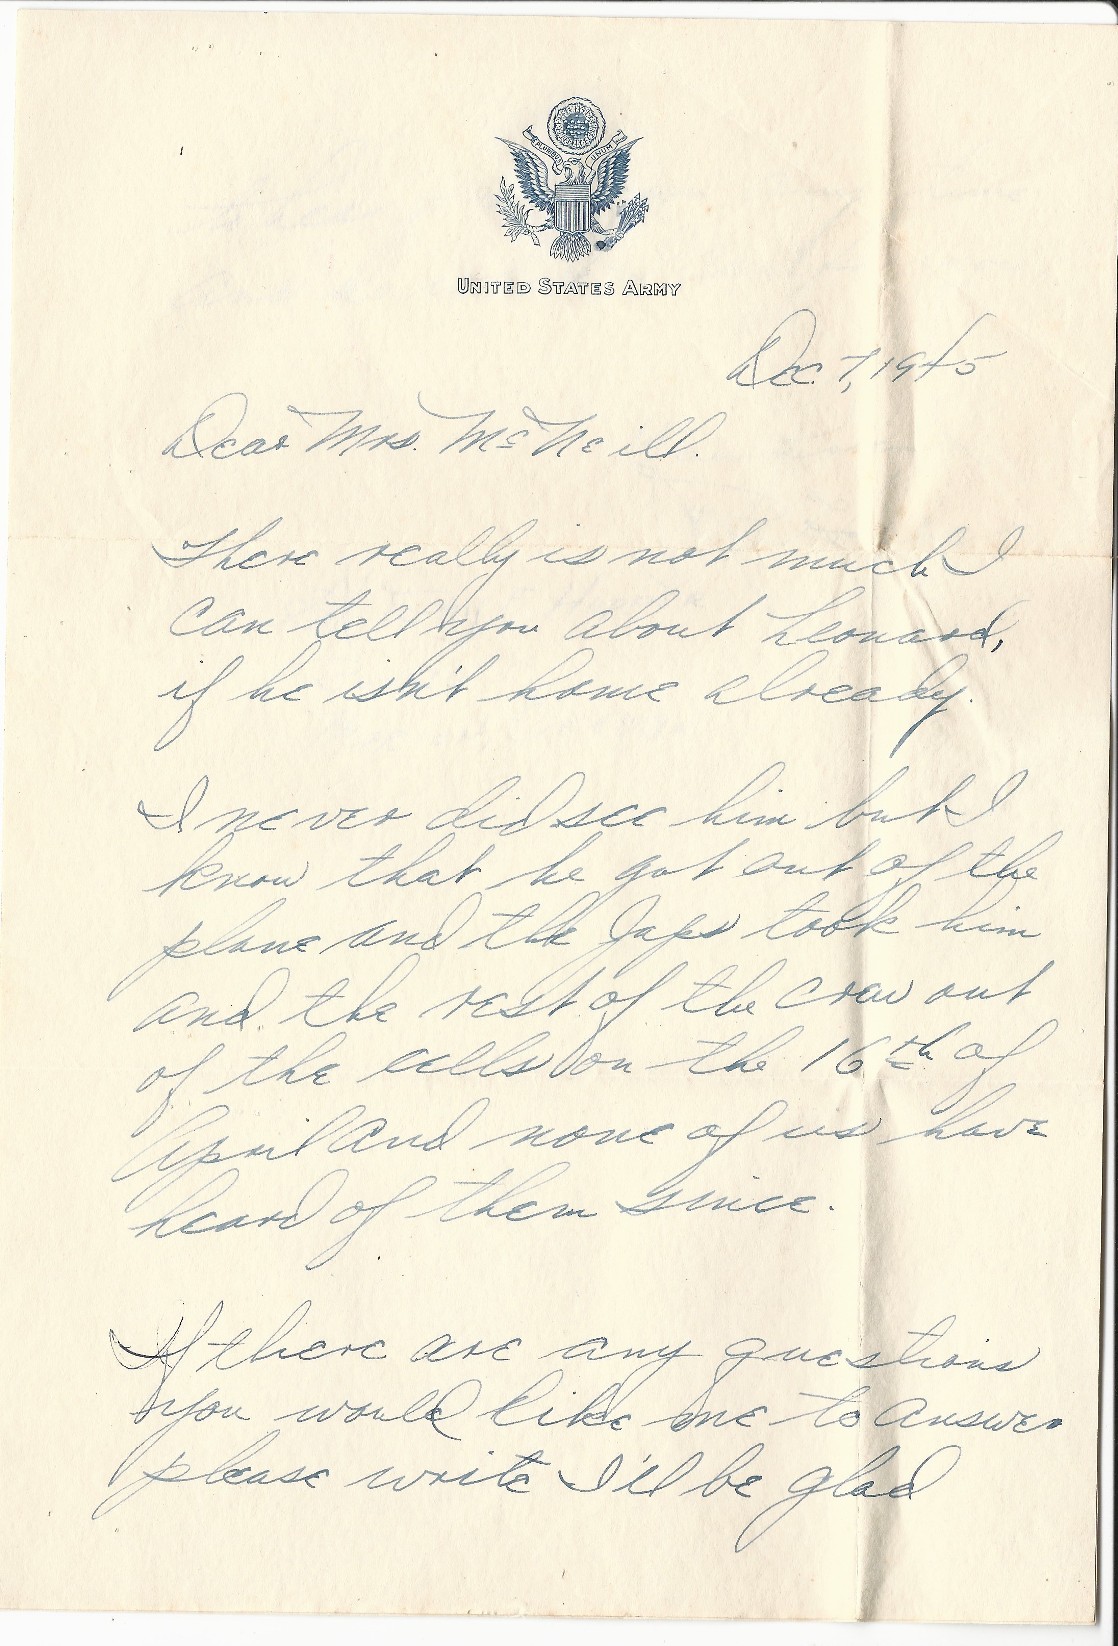 E PLURIBUS UNUM
UNITED STATES ARMY
Dec. 7, 1945
Dear Mrs. McNeill.
There really is not much I
can tell you about Leonard,
if he isn't home already.
I never did see him but I
know that he got out of the
plane and the Japs took him
and the rest of the crew out
of the cells on the 16th of
April and none of us have
heard of them since.
If there are any questions
you would like me to answer
please write I'll be glad